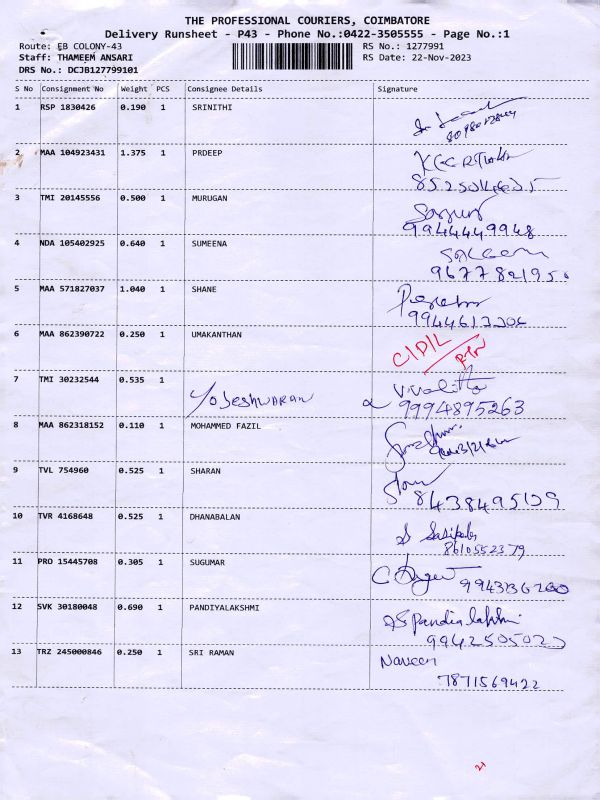 THE PROFESSIONAL COURIERS, COIMBATORE
Delivery Runsheet - P43 - Phone No.:0422-3505555 - Page No.:1
Route: EB COLONY-43 RS No.: 1277991
Staff: THAMEEM ANSARI RS Date: 22-Nov-2023
DRS No.: DCJB127799101
S No Consignment No Weight PCS Consignee Details Signature
1 RSP 1830426 0.190 1 SRINITHI
2 MAA 104923431 1.375 1 PRDEEP
3 TMI 20145556 0.500 1 MURUGAN
9944449948
4 NDA 105402925 0.640 1 SUMEENA
9677821950
5 MAA 571827037 1.040 1 SHANE
6 MAA 862390722 0.250 1 UMAKANTHAN C/D/L
RTN
7 TMI 30232544 0.535 1
Yogeshwaran 9994895263
8 MAA 862318152 0.110 1 MOHAMMED FAZIL
9 TVL 754960 0.525 1 SHARAN
8438495109
10 TVR 4168648 0.525 1 DHANABALAN
8610552379
11 PRO 15445708 0.305 1 SUGUMAR
9943136200
12 SVK 30180048 0.690 1 PANDIYALAKSHMI
Pandialakshmi
9942505020
13 TRZ 245000846 0.250 1 SRI RAMAN Naveen
7871569422
21